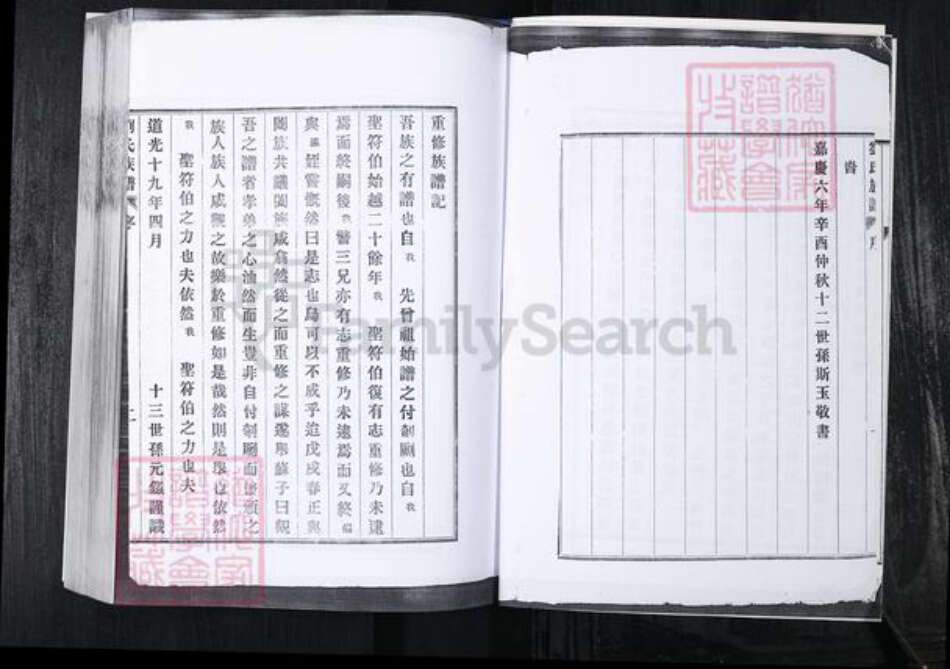 嘉慶六年辛酉仲秋十二世孫斯玉敬書
重修族譜記
吾族之有譜也自我 先曾祖始譜之付剞劂也自我
聖符伯始越二十餘年我 聖符伯復有志重修乃未逮
焉而終嗣後我 醫三兄亦有志重修乃未逮焉而又終
與 慨然曰是志也烏可以不成乎迨戊戌春正與
闔族共議闔族咸翕然從之而重修之謀遂舉蘇子曰觀
吾之譜者孝弟之心油然而生豈非自付剞劂而
族人族人咸觀之故樂於重修如是哉然則是舉也依然
我 聖符伯之力也夫依然我 聖符伯之力也夫
道光十九年四月 十三世孫元 謹識
劉氏族譜 序 二
FamilySearch